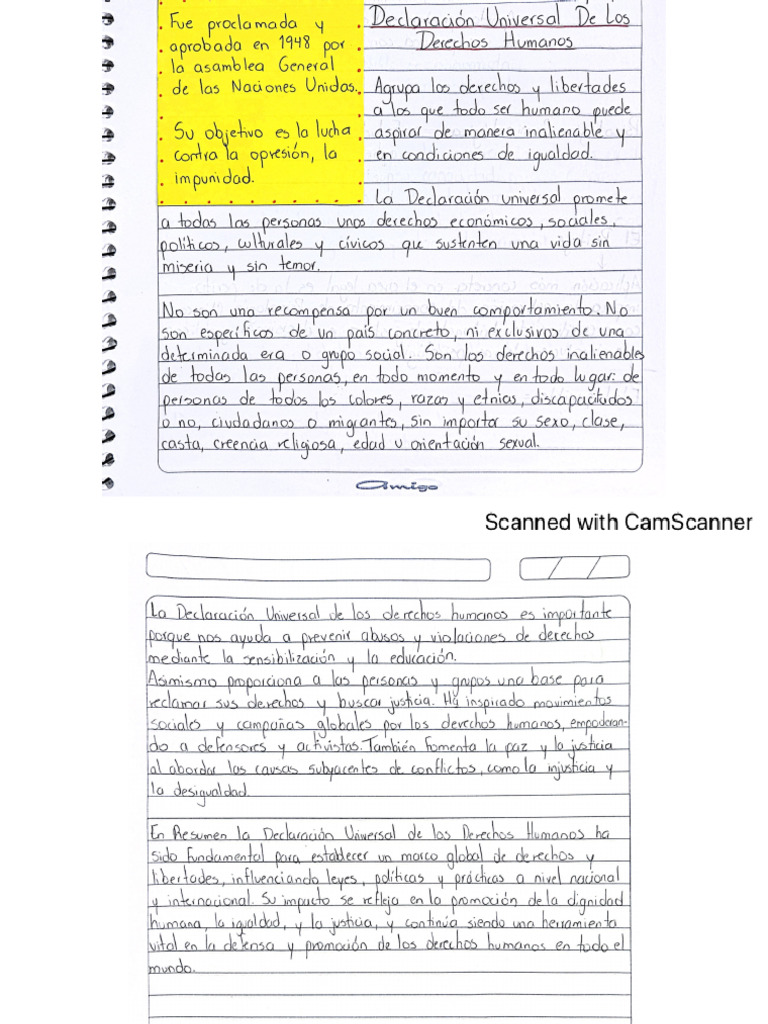 Fue proclamada y
aprobada en 1948 por
la asamblea General
de las Naciones Unidas.
Su objetivo es la lucha
contra la opresión, la
impunidad.
Declaración Universal De Los
Derechos Humanos
Agrupa los derechos y libertades
a los que todo ser humano puede
aspirar de manera inalienable y
en condiciones de igualdad.
La Declaración universal promete
a todas las personas unos derechos económicos, sociales,
políticos, culturales y cívicos que sustenten una vida sin
miseria y sin temor.
No son una recompensa por un buen comportamiento. No
son específicos de un país concreto, ni exclusivos de una
determinada era o grupo social. Son los derechos inalienables
de todas las personas, en todo momento y en todo lugar: de
personas de todos los colores, razas y etnias, discapacitados
o no, ciudadanos o migrantes, sin importar su sexo, clase,
casta, creencia religiosa, edad u orientación sexual.
Amigo
Scanned with CamScanner
La Declaración Universal de los derechos humanos es importante
porque nos ayuda a prevenir abusos y violaciones de derechos
mediante la sensibilización y la educación.
Asimismo proporciona a las personas y grupos una base para
reclamar sus derechos y buscar justicia. Ha inspirado movimientos
sociales y campañas globales por los derechos humanos, empoderan-
do a defensores y activistas. También fomenta la paz y la justicia
al abordar las causas subyacentes de conflictos, como la injusticia y
la desigualdad.
En Resumen la Declaración Universal de los Derechos Humanos ha
sido fundamental para establecer un marco global de derechos y
libertades, influenciando leyes, políticas y prácticas a nivel nacional
y internacional. Su impacto se refleja en la promoción de la dignidad
humana, la igualdad, y la justicia, y continúa siendo una herramienta
vital en la defensa y promoción de los derechos humanos en todo el
mundo.